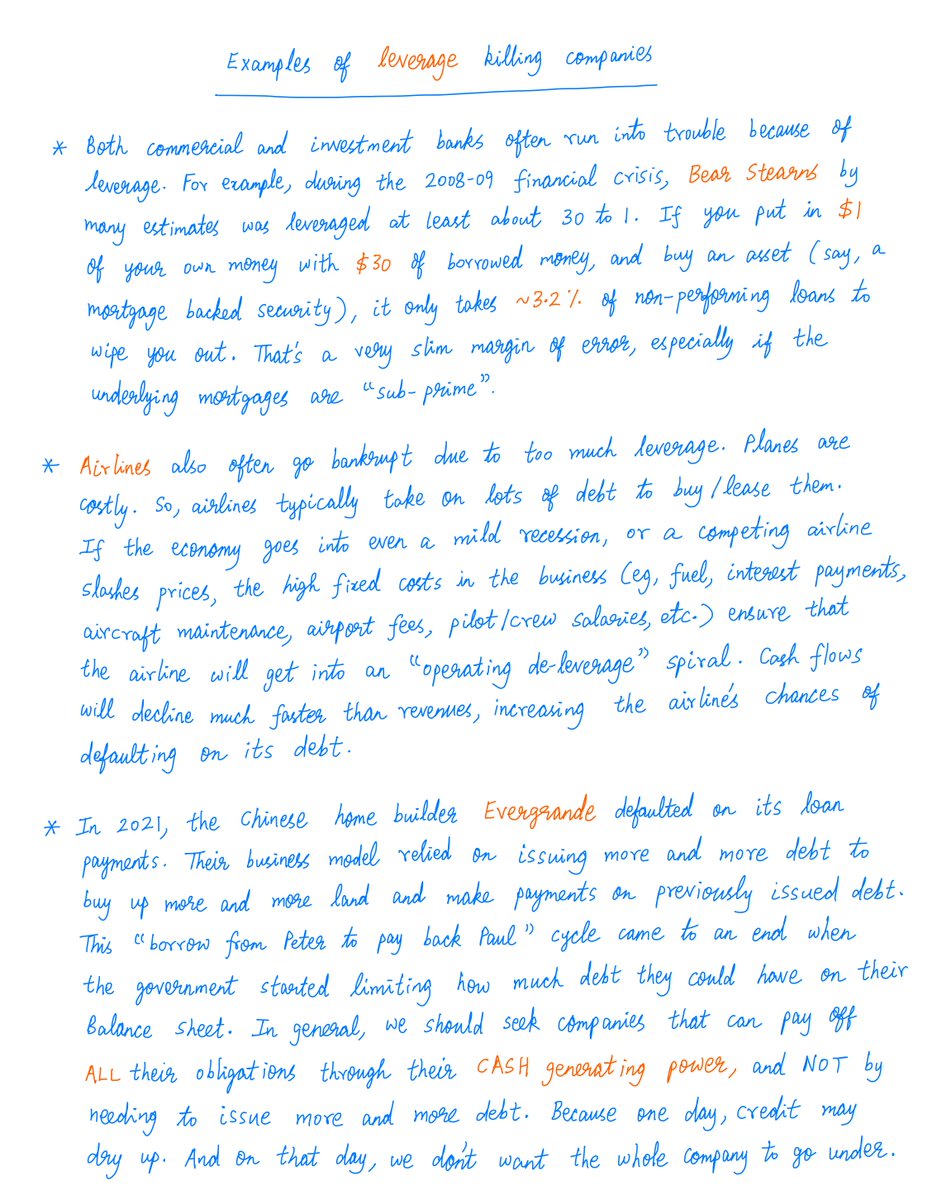 Examples of leverage killing companies
* Both commercial and investment banks often run into trouble because of
leverage. For example, during the 2008-09 financial crisis, Bear Stearns by
many estimates was leveraged at least about 30 to 1. If you put in $1
of your own money with $30 of borrowed money, and buy an asset (say, a
mortgage backed security), it only takes ~3.2% of non-performing loans to
wipe you out. That's a very slim margin of error, especially if the
underlying mortgages are "sub-prime".
* Airlines also often go bankrupt due to too much leverage. Planes are
costly. So, airlines typically take on lots of debt to buy/lease them.
If the economy goes into even a mild recession, or a competing airline
slashes prices, the high fixed costs in the business (eg, fuel, interest payments,
aircraft maintenance, airport fees, pilot/crew salaries, etc.) ensure that
the airline will get into an "operating de-leverage" spiral. Cash flows
will decline much faster than revenues, increasing the airline's chances of
defaulting on its debt.
* In 2021, the Chinese home builder Evergrande defaulted on its loan
payments. Their business model relied on issuing more and more debt to
buy up more and more land and make payments on previously issued debt.
This "borrow from Peter to pay back Paul" cycle came to an end when
the government started limiting how much debt they could have on their
Balance Sheet. In general, we should seek companies that can pay off
ALL their obligations through their CASH generating power, and NOT by
needing to issue more and more debt. Because one day, credit may
dry up. And on that day, we don't want the whole company to go under.